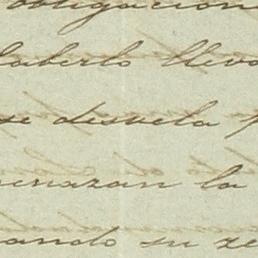 obligacion
haberlo lleva
se desvela p
menazan la
ando su ze